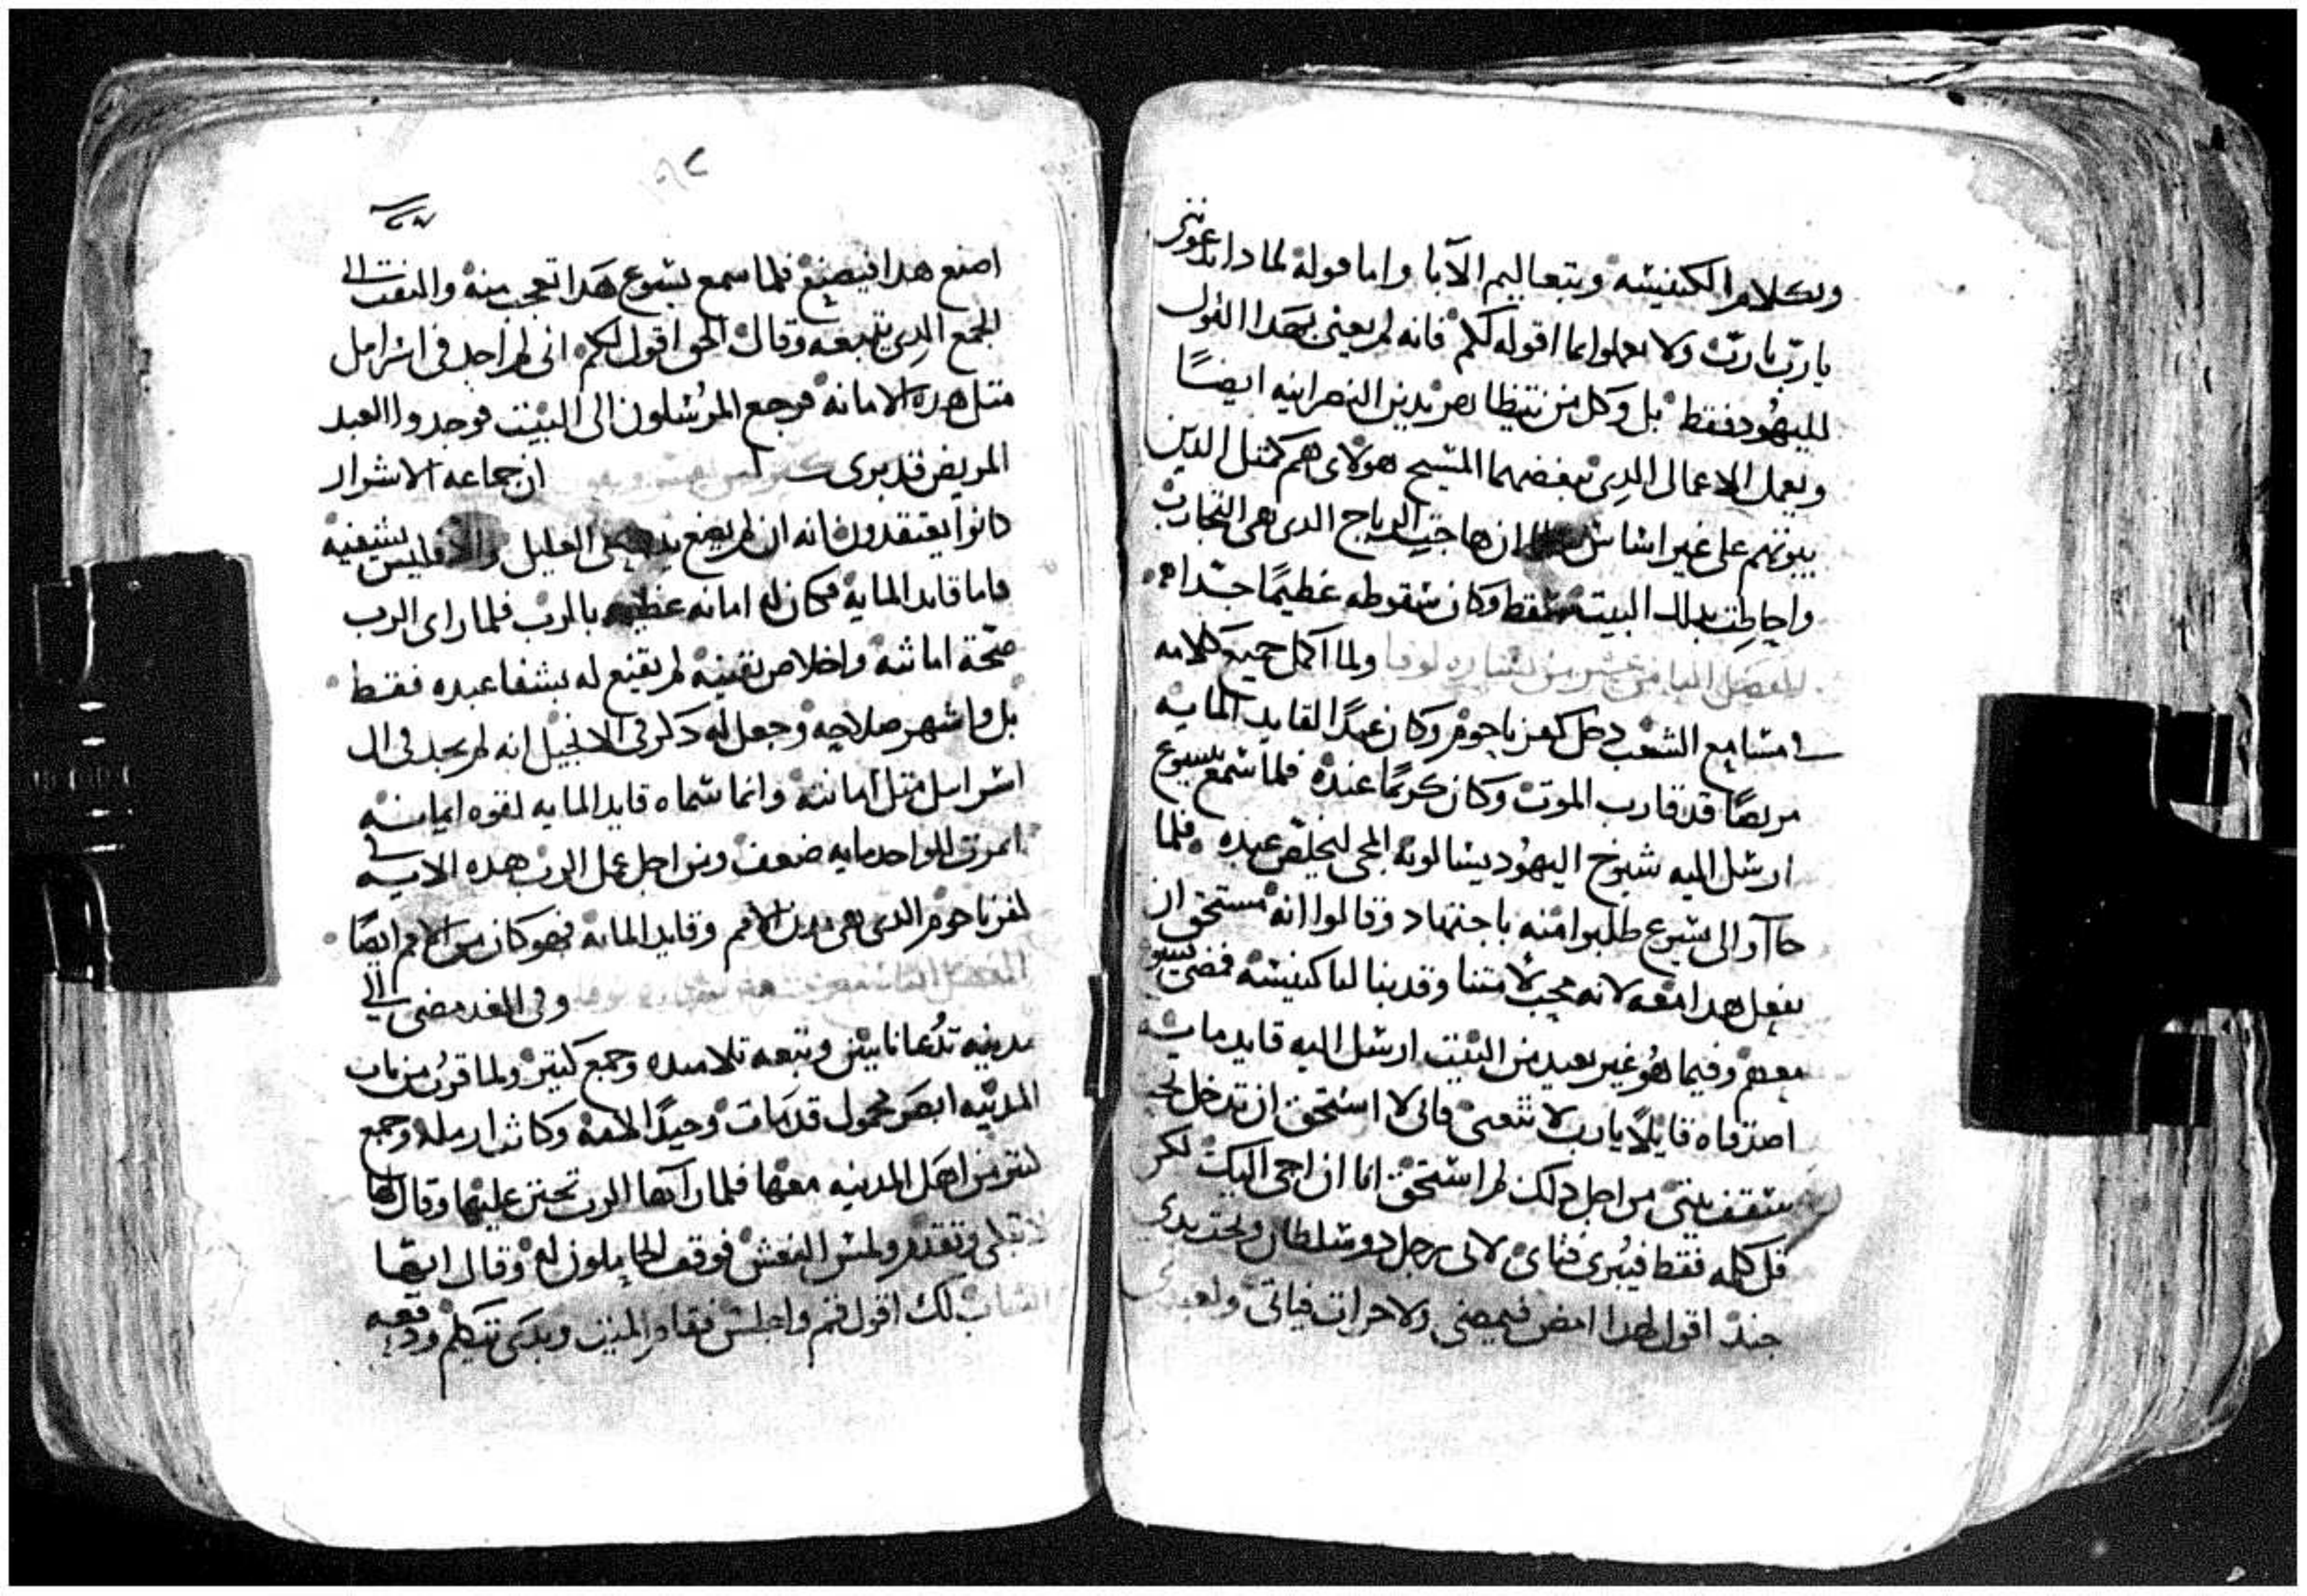 وبكلام الكنيسه وبتعاليم الآبا واما قوله لما دا تدعوننى
يا ربّ يا ربّ ولا تعملوا بما اقوله لكم فانه لم يعنى بهدا القول
لليهُود فقط بل وكل من يتظاهر بدين النصرانيه ايضًا
ويعمل الاعمال الدِى يبغضهما المسيح هولاى هم كمتل الدين
بيوتهم على غير اساس ان هاجت الرياح الدى هى التجارب
واحاطت بدلك البيت سقط وكان سقوطه عظيمًا جدا
الفصل التامن عشر من بشاره لوقا ولما اكمل جميع كلامه
فى مسامع الشعب دخل كفرناحوم وكان عبدًا لقايد المايه
مريضًا قد قارب الموت وكان كريمًا عنده فلما سمع بيسوع
ارسل اليه شيوخ اليهُود يسالونه المجى ليخلص عبده فلما
جاآوا الى يسوع طلبوا منه باجتهاد وقالوا انه مستحق ان
يفعل هدا معه لانه محب لامتنا وقد بنا لنا كنيسه فمضى يسوع
معهم وفيما هُو غير بعيد من البيت ارسل اليه قايد مايه
اصدقاه قايلاً يا رب لا تتعنى فانى لا استحق ان تدخل تحت
سقف بيتى من اجل دلك لم استحق انا ان اجى اليك لكن
قل كلمه فقط فيُبرى فتاى لانى رجل دو سلطان وتحت يدى
جند اقول لهدا امض فيمضى ولاخر ات فياتى ولعبدى
اصنع هدا فيصنع فلما سمع يسوع هدا تعجب منه والتفت الى
الجمع الدِى يتبعه وقال الحق اقول لكم انى لم اجد فى اسراييل
متل هده الامانه فرجع المرُسلون الى البيت فوجدوا العبد
المريض قد برى ان جماعه الاشرار
كانوا يعتقدون انه ان لم يضع يده على العليل والا فليس يشفيه
فاما قايد المايه فكان له امانه عظيمه بالرب فلما راى الرب
صحّة امانته واخلاص يقينه لم يقنع له بشفا عبده فقط
بل واشهر صلاحه وجعل له دكر فى الانجيل انه لم يجد فى ال
اسراييل متل امانته وانما سماه قايد المايه لقوه ايمانه
اتمرت للواحد مايه ضعف ومن اجل عمل الرب هده الايه فى
كفرناحوم الدى هى مدينة الامم وقايد المايه فهو كان من الامم ايضًا
الفصل التاسع عشر من بشاره لوقا وفى الغد مضى الى
مدينه تُدعا نايين وتبعه تلاميده وجمع كتير ولما قرُب من باب
المدينه ابصر محمول قد مات وحيدًا لامه وكانت ارمله وجمع
كتير من اهل المدينه معها فلما رآها الرب تحنن عليها وقال لها
لا تبكى وتقدم ولمس النعش فوقف الحاملون له وقال ايها
الشاب لك اقول قم واجلس فقام الميت وبدى يتكلم ودفعه